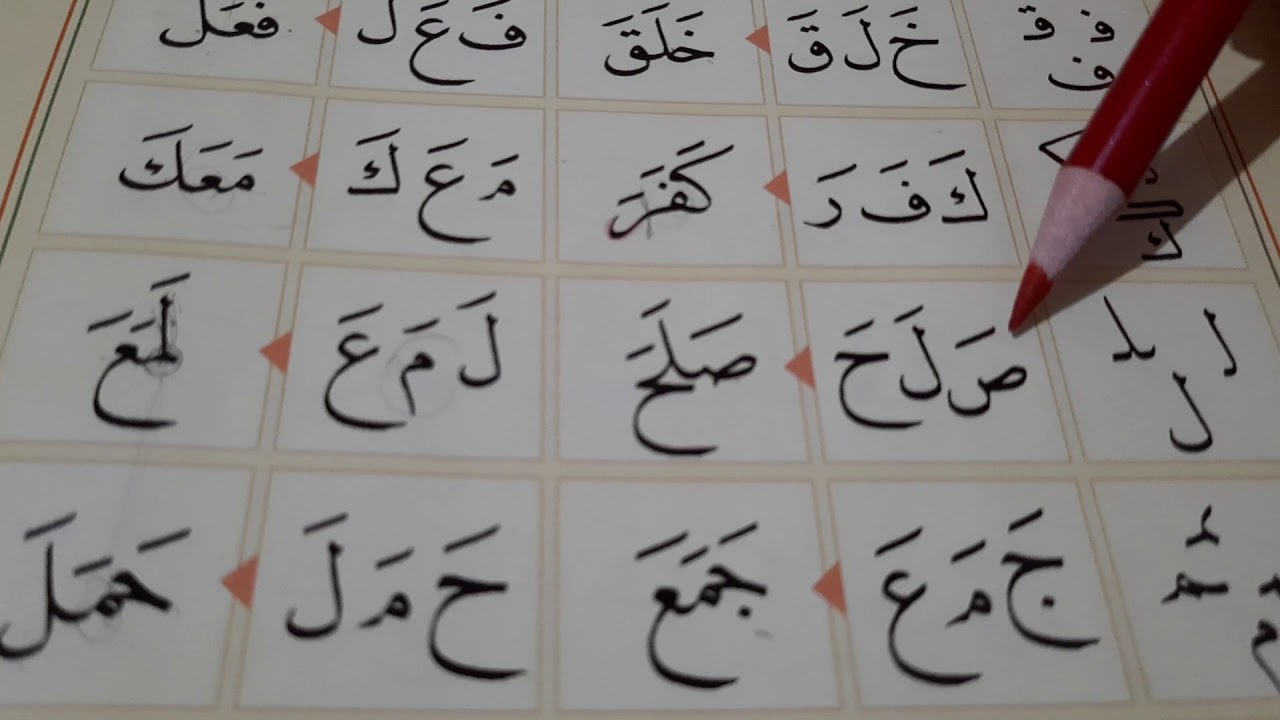 ف ق ف خَ لَ قَ خَلَقَ فَ عَ لَ فَعَلَ
ك كَ فَ رَ كَفَرَ مَ عَ كَ مَعَكَ
ل ل ل صَ لَ حَ صَلَحَ لَ مَ عَ لَمَعَ
جَ مَ عَ جَمَعَ حَ مَ لَ حَمَلَ